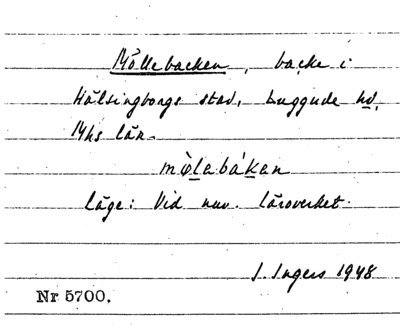 Möllebacken, backe i
Hälsingborgs stad, Luggude hd,
Mhs län.
mø̀lebákan
läge: Vid nuv. läroverket.
I. Ingers 1948
Nr 5700.